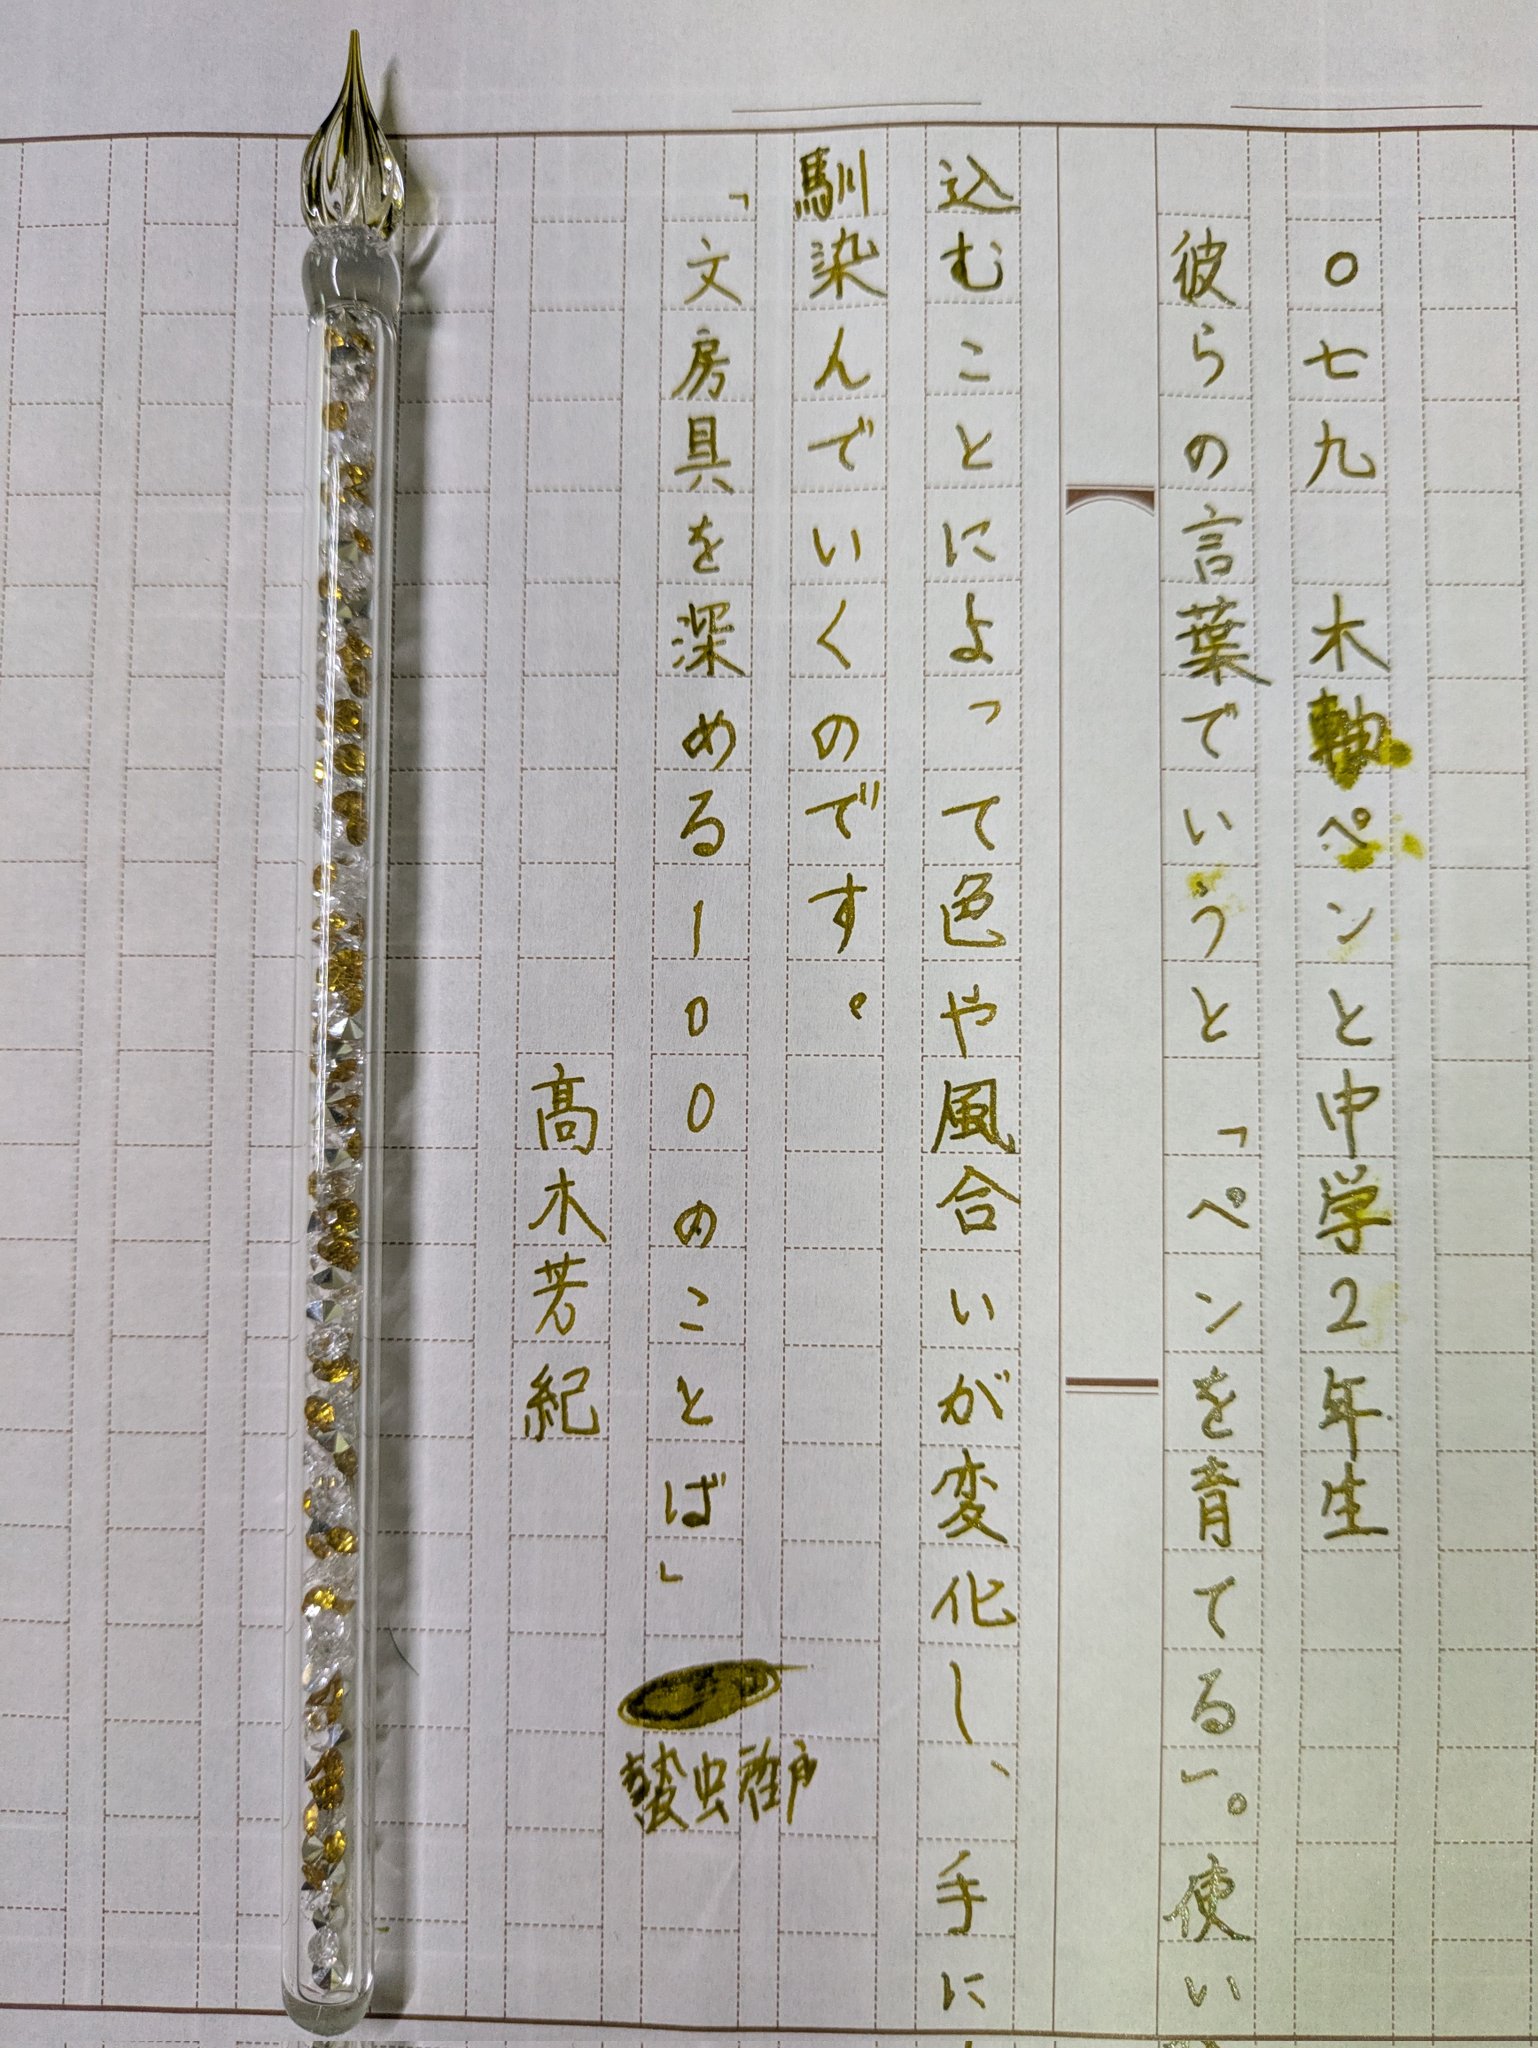 〇七九　木軸ペンと中学2年生
彼らの言葉でいうと「ペンを育てる」。使い
込むことによって色や風合いが変化し、手に
馴染んでいくのです。
「文房具を深める100のことば」
高木芳紀